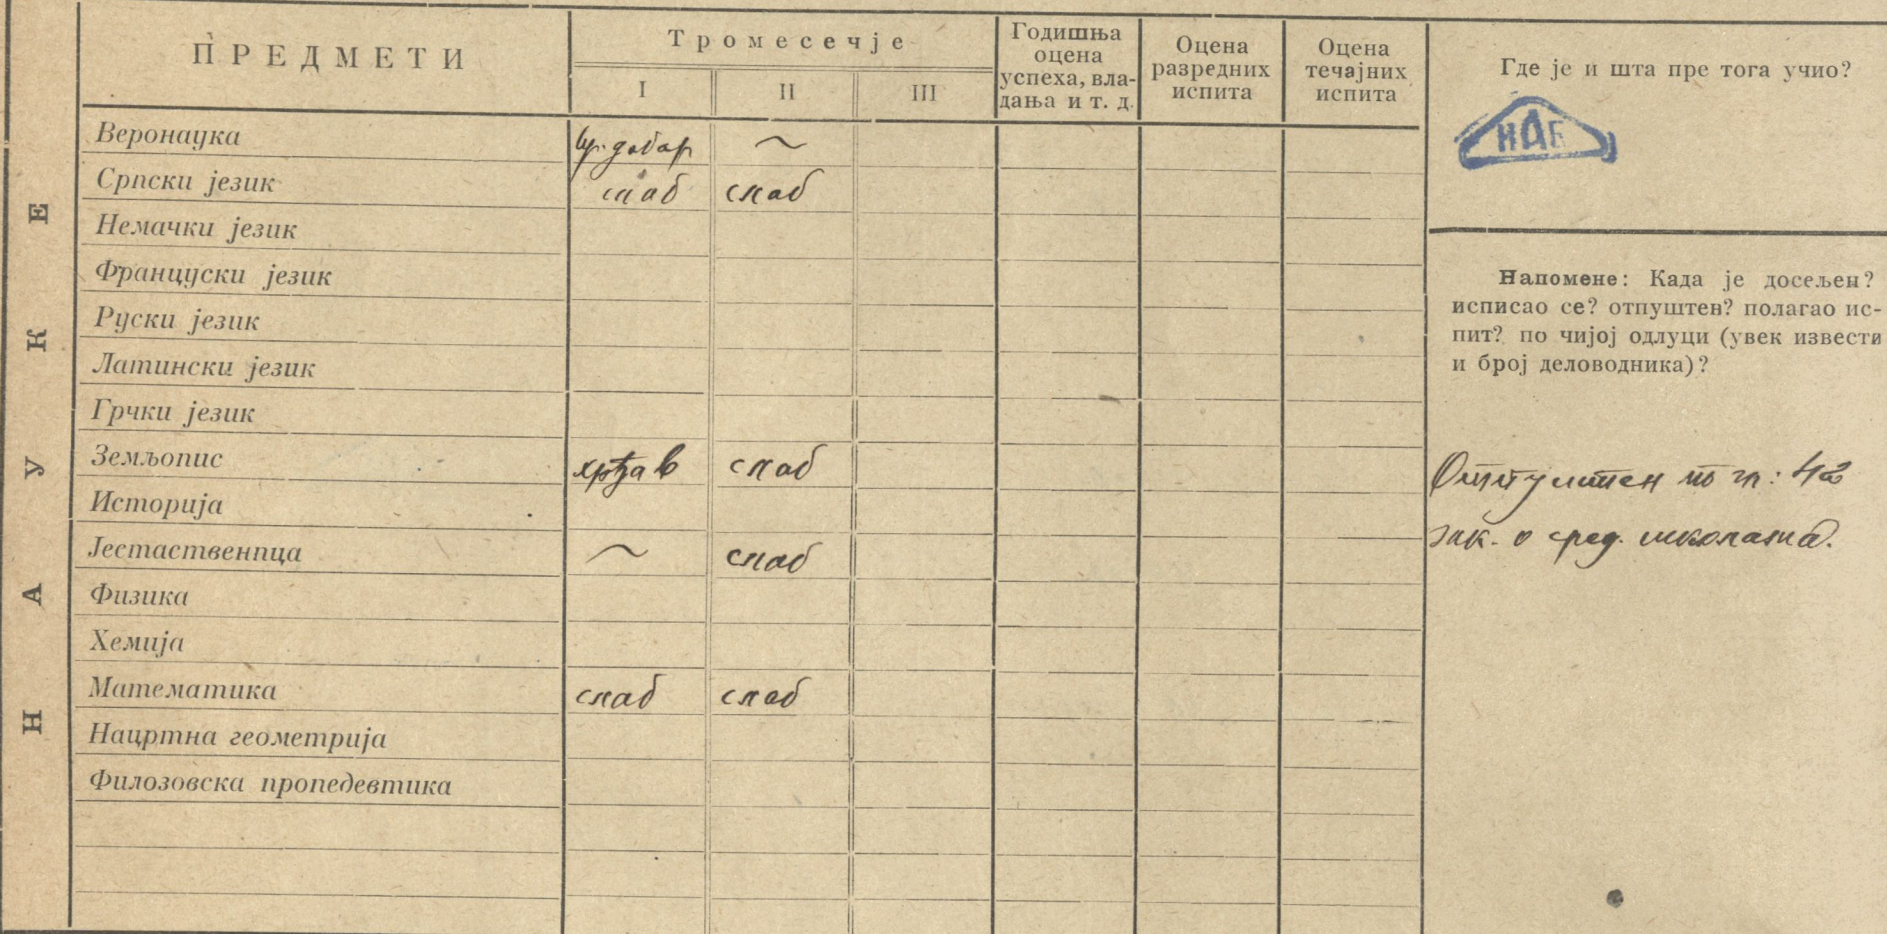 НАУКЕ
ПРЕДМЕТИ
Тромесечје
I II III
Годишња оцена успеха, вла-дања и т. д.
Оцена разредних испита
Оцена течајних испита
Где је и шта пре тога учио?
НАБ
Веронаука вр. добар ~
Српски језик слаб слаб
Немачки језик
Француски језик
Руски језик
Латински језик
Грчки језик
Земљопис хрђав слаб
Историја
Јестаственица ~ слаб
Физика
Хемија
Математика слаб слаб
Нацртна геометрија
Филозовска пропедевтика
Напомене: Када је досељен?
исписао се? отпуштен? полагао ис-
пит? по чијој одлуци (увек извести
и број деловодника)?
Отпуштен по чл: 42
зак. о сред. школама.